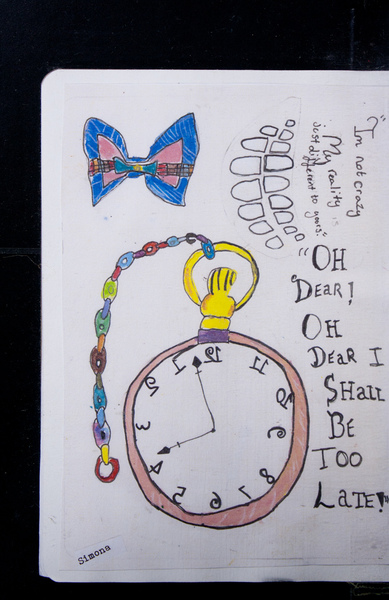 "Im not crazy
My reality is
just different to yours."
"OH
DEAR!
OH
DEAR I
SHALL
BE
TOO
LATE!"
12
11
10
9
8
7
6
5
4
3
2
1
Simona